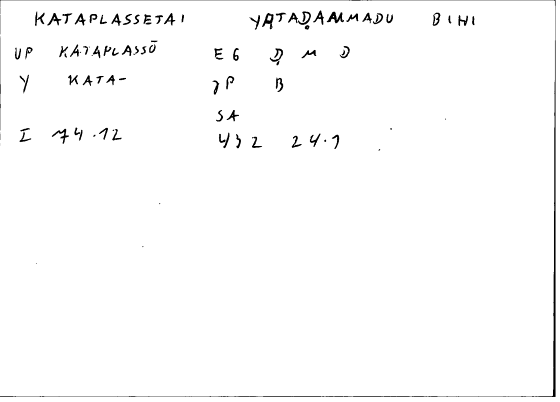 KATAPLASSETAI YATAḌAMMADU BIHI
UP KATAPLASSŌ EG Ḍ M D
Y KATA- γP B
SA
I 74.12 432 24.1